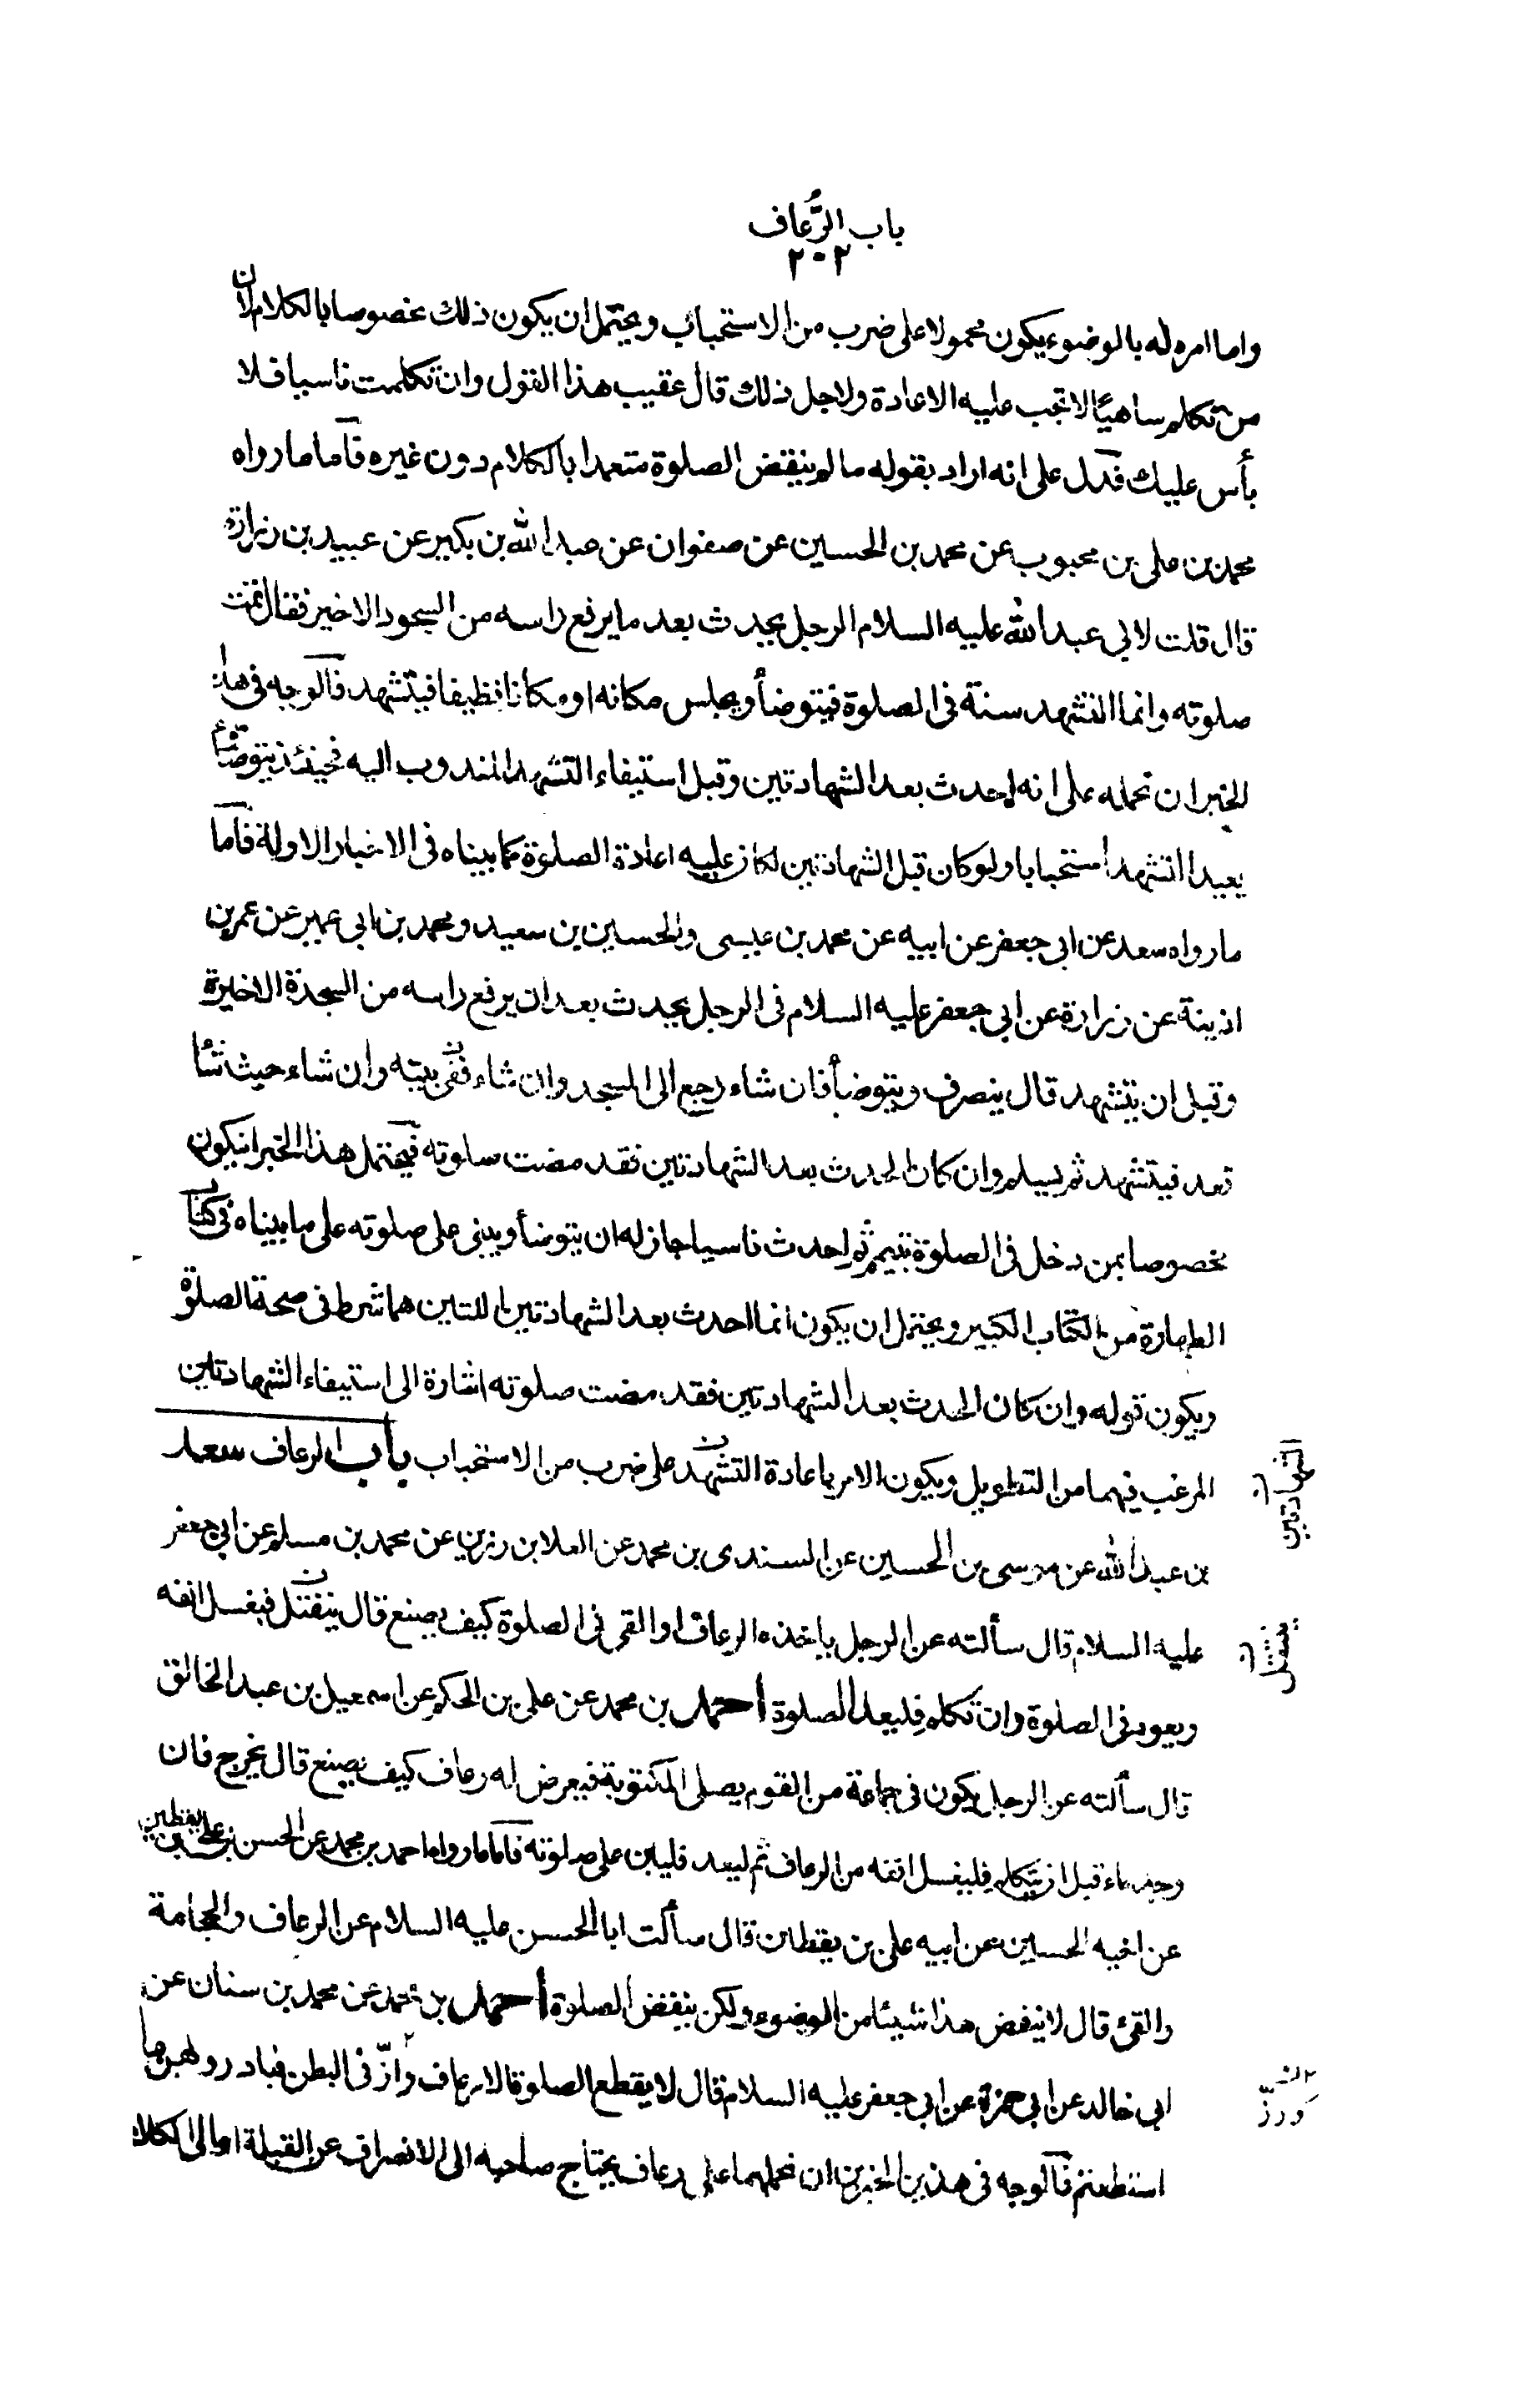 باب الرُّعاف
٢٠٢
واما امره له بالوضوء يكون محمولا على ضرب من الاستحباب ويحتمل ان يكون ذلك مخصوصا بالكلام لان
من تكلم ساهيًا لا تجب عليه الاعادة ولاجل ذلك قال عقيب هذا القول وان تكلمت ناسيا فلا
بأس عليك فدل على انه اراد بقوله ما لم ينقض الصلوة متعمدا بالكلام دون غيره فآما ما رواه
محمد بن على بن محبوب عن محمد بن الحسين عن صفوان عن عبد الله بن بكير عن عبيد بن زرارة
قال قلت لابي عبد الله عليه السلام الرجل يحدث بعد ما يرفع راسه من السجود الاخير فقال تمت
صلوته وانما التشهد سنة فى الصلوة فيتوضأ ويجلس مكانه او مكانا نظيفا فيتشهد فآلوجه فى هذا
الخبر ان نحمله على انه احدث بعد الشهادتين وقبل استيفاء التشهد المندوب اليه فحينئذ يتوضأ و
يعيد التشهد استحبابا ولو كان قبل الشهادتين لكان عليه اعادة الصلوة كما بيناه فى الاخبار الاولة فآما
ما رواه سعد عن ابى جعفر عن ابيه عن محمد بن عيسى والحسين بن سعيد ومحمد بن ابى عمير عن عمر بن
اذينة عن زرارة عن ابي جعفر عليه السلام فى الرجل يحدث بعد ان يرفع راسه من السجدة الاخيرة
وقبل ان يتشهد قال ينصرف ويتوضأ فان شاء رجع الى المسجد وان شاء ففى بيته وان شاء حيث شاء
قعد فيتشهد ثم يسلم وان كان الحدث بعد الشهادتين فقد مضت صلوته فيحتمل هذا الخبر ان يكون
مخصوصا بمن دخل فى الصلوة بتيمم ثم احدث ناسيا جاز له ان يتوضأ ويبنى على صلوته على ما بيناه فى كتاب
الطهارة من الكتاب الكبير ويحتمل ان يكون انما احدث بعد الشهادتين اللتين هما شرط فى صحة الصلوة
ويكون قوله وان كان الحدث بعد الشهادتين فقد مضت صلوته اشارة الى استيفاء الشهادتين
المرغب فيهما من التطويل ويكون الامر باعادة التشهد على ضرب من الاستحباب باب الرعاف سعد
الشهادتين
بن عبد الله عن موسى بن الحسين عن السندى بن محمد عن العلا بن رزين عن محمد بن مسلم عن ابي جعفر
عليه السلام قال سألته عن الرجل ياخذه الرعاف او القى فى الصلوة كيف يصنع قال ينفتل فيغسل انفه
ينتقل
ويعود فى الصلوة وان تكلم فليعد الصلوة احمد بن محمد عن على بن الحكم عن اسمعيل بن عبد الخالق
قال سألته عن الرجل يكون فى جماعة من القوم يصلى المكتوبة فيعرض له رعاف كيف يصنع قال يخرج فان
وجد ماء قبل ان يتكلم فليغسل انفه من الرعاف ثم ليعد فليبن على صلوته فآما ما رواه احمد بن محمد عن الحسن بن على بن يقطين
عن اخيه الحسين عن ابيه على بن يقطين قال سألت ابا الحسن عليه السلام عن الرعاف والحجامة
والقئ قال لا ينقض هذا شيئا من الوضوء ولكن ينقض الصلوة احمد بن محمد عن محمد بن سنان عن
ابي خالد عن ابي حمزة عن ابي جعفر عليه السلام قال لا يقطع الصلوة الا رعاف وازّ فى البطن فبادروا بهن ما
ورزّ
استطعتم فآلوجه فى هذين الخبرين ان نحملهما على رعاف يحتاج صاحبه الى الانصراف عن القبلة او الى الكلام